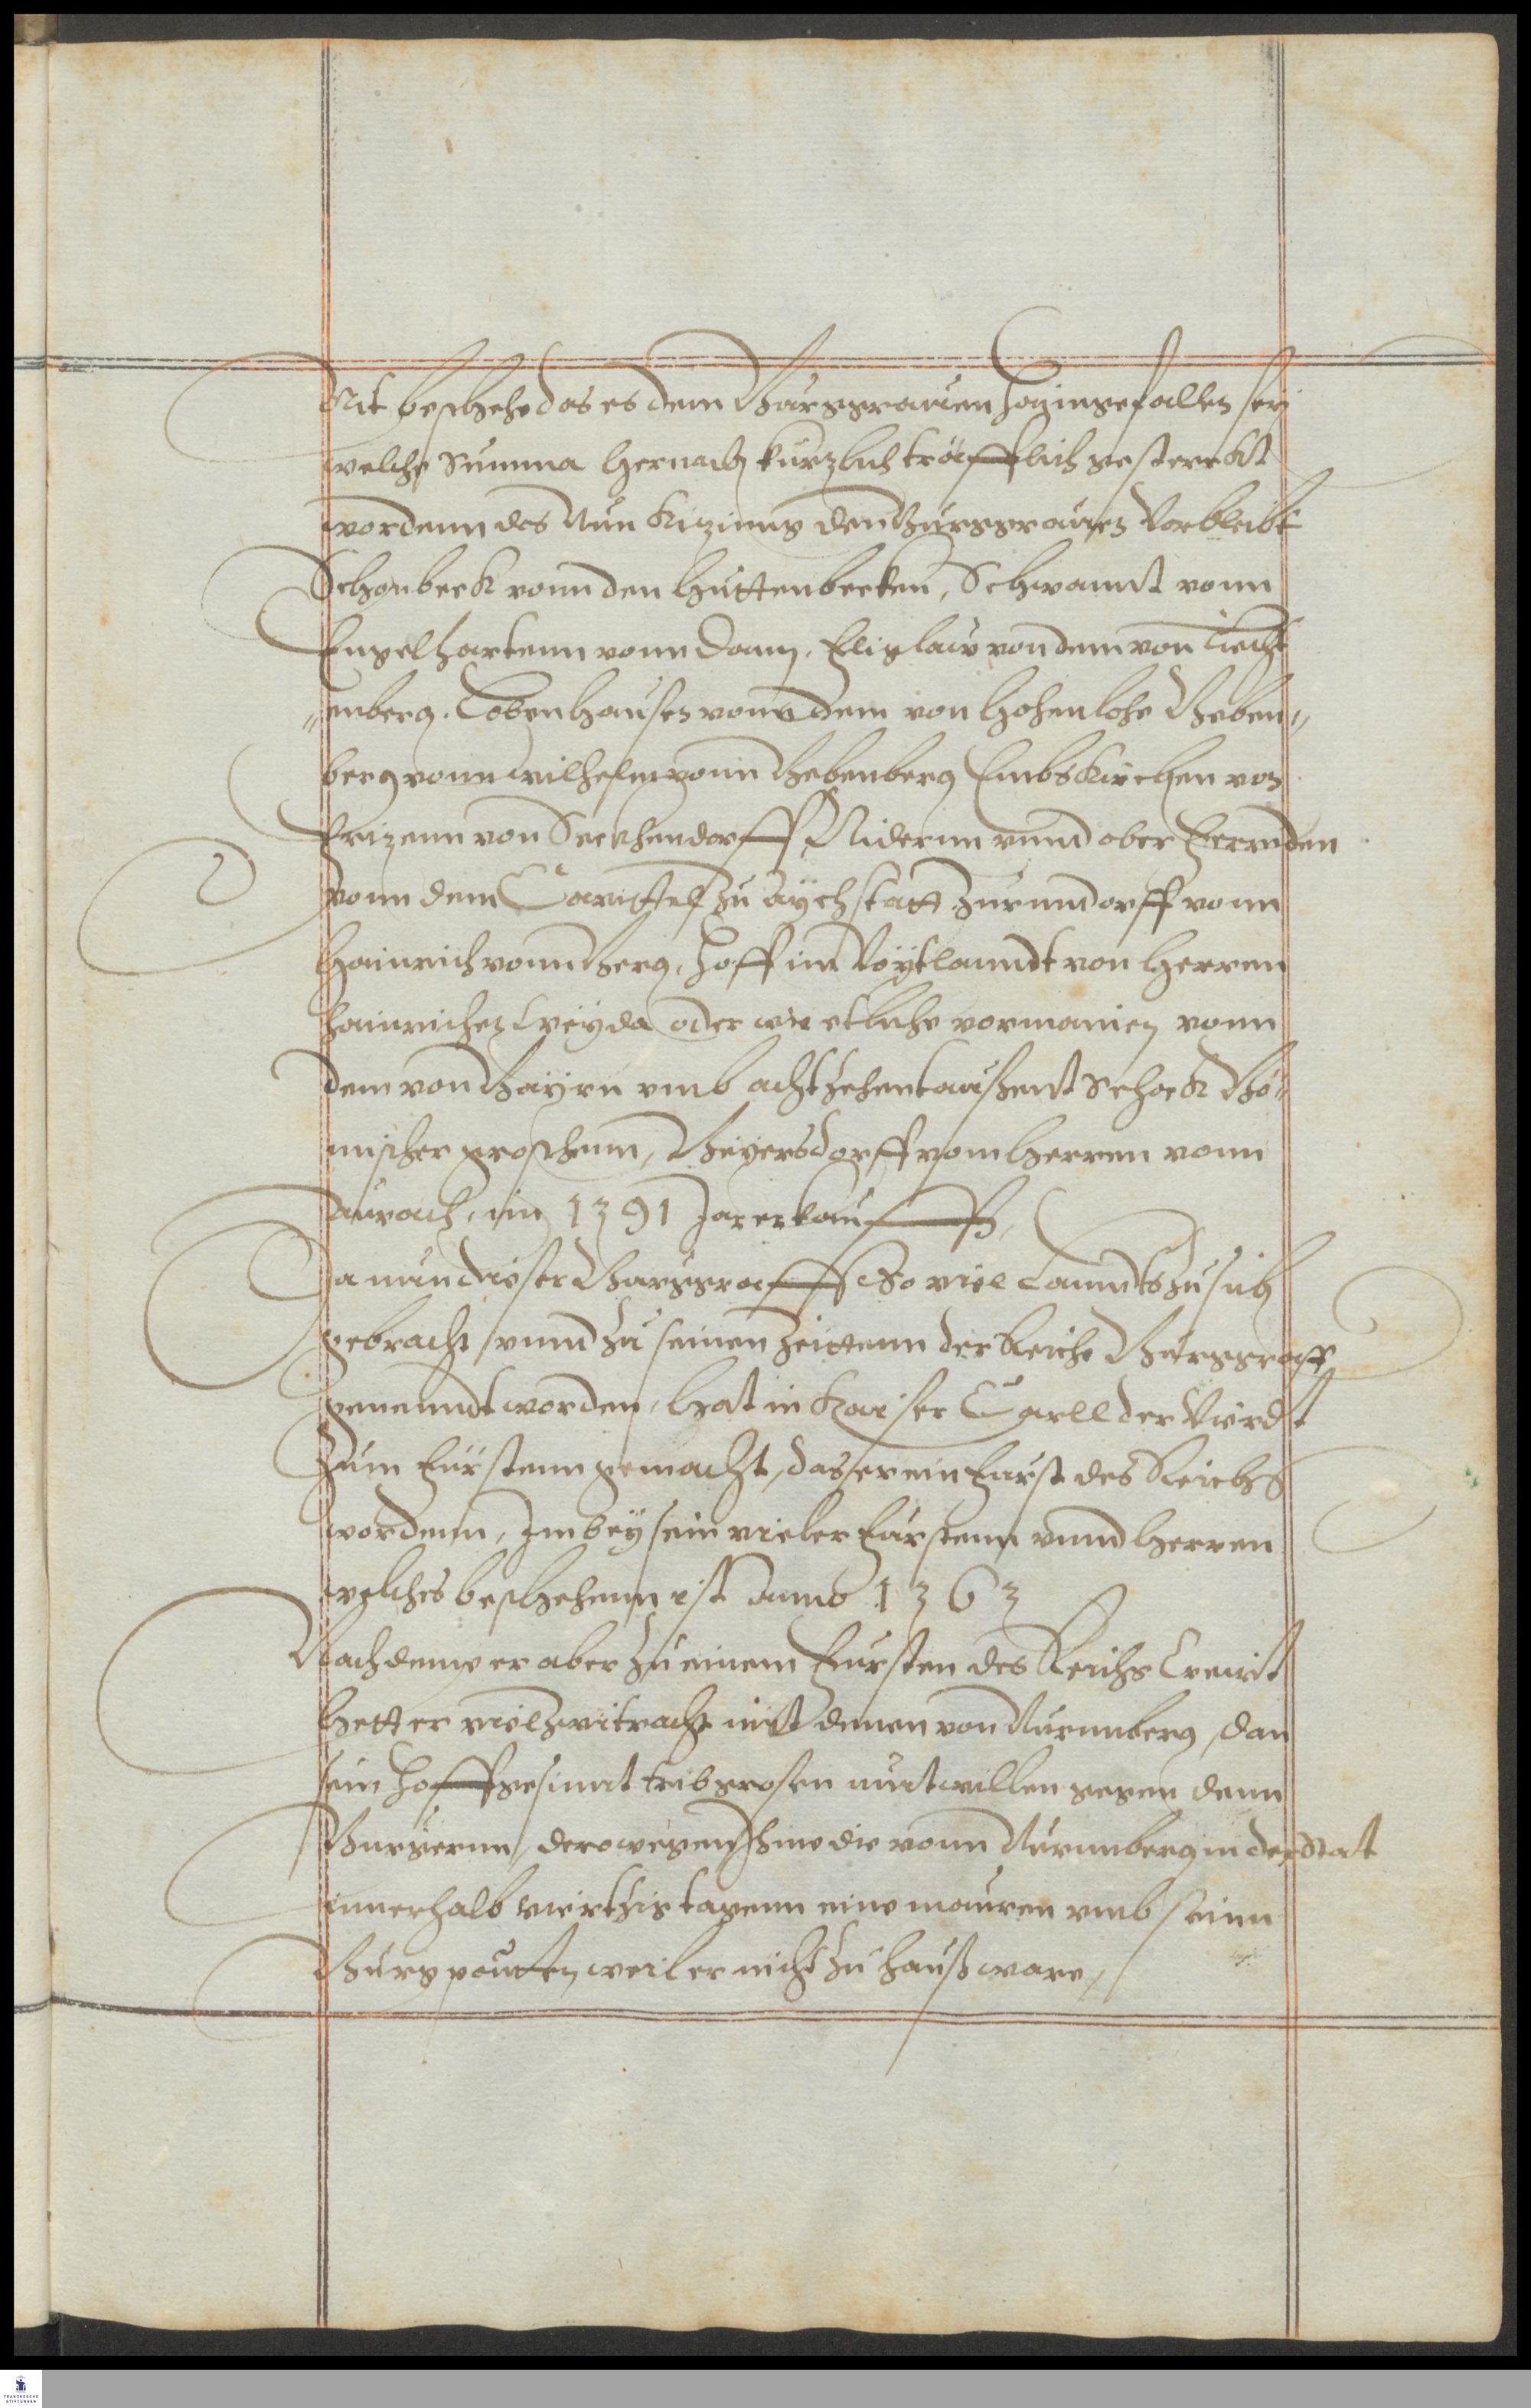 Nit beschehe das es dem Burggrauen haimgefallen sey
welche Summa hernach kurzlich träfflich gesterckt
wordenn das Nun Kizinng den Burggrauen Verbleibt
Schonbeck vonn den Huttenbecken, Schwannt vonn
Engelhartenn vonn Dann, Elislaw von dem von Liecht
„enberg. Lobenhausen vonn dem von Hohenlohe Beben„
berg vonn wilhelm vonn Bebenberg Embskirchen von
Frizenn von Seckhendorff, Nidernn vnnd ober Ferrnden
vonn dem Capittel zu Aychstatt Zurnndorff vonn
Hainrich vonn Berg, Hoff im Voytlanndt von Herren
Hainrichen Weyda oder wie etliche vermainen vonn
dem von Bayrn vmb achtzehentaußent Schock Bö„
mischer groschenn, Beyersdorff vom Herren vonn
Aurach, im 1391 Jar erkaufft,
Da nun dieser Burggraff So viel Lanndts zu sich
gebracht vnnd zu seinen Zeittenn der Reiche Burggraff
genenndt worden, hat in Kaiser Carll der Vierdt
zum Fürstenn gemacht, das er ein Furst des Reichs
wordenn, Im beysein vieler Fürstenn vnnd Herren
welches beschehenn ist Anno 1363
Nach deme er aber zu einem Fursten des Reichs Creirt
hett er viel zwitracht mit denen von Nurmberg, dan
sein Hoffgesinnt trib grosen mutwillen gegen denn
Burgernn, derowegen Ihme die vonn Nurmberg in der Stat
innerhalb vierthig tagenn eine mauren vmb seinn
Burg pautten, weil er nicht zu Hauß ware,
FRANCKESCHE
STIFTUNGEN